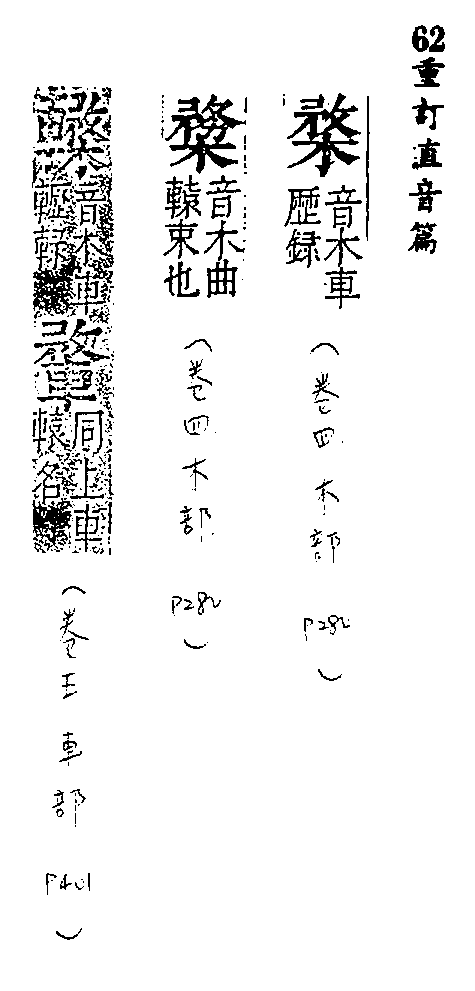 62重訂直音篇
楘音木車歷録(卷四木部P282)
音木曲轅束也(卷四木部P282)
楘音木車轣同上車轅名(卷五車部P401)